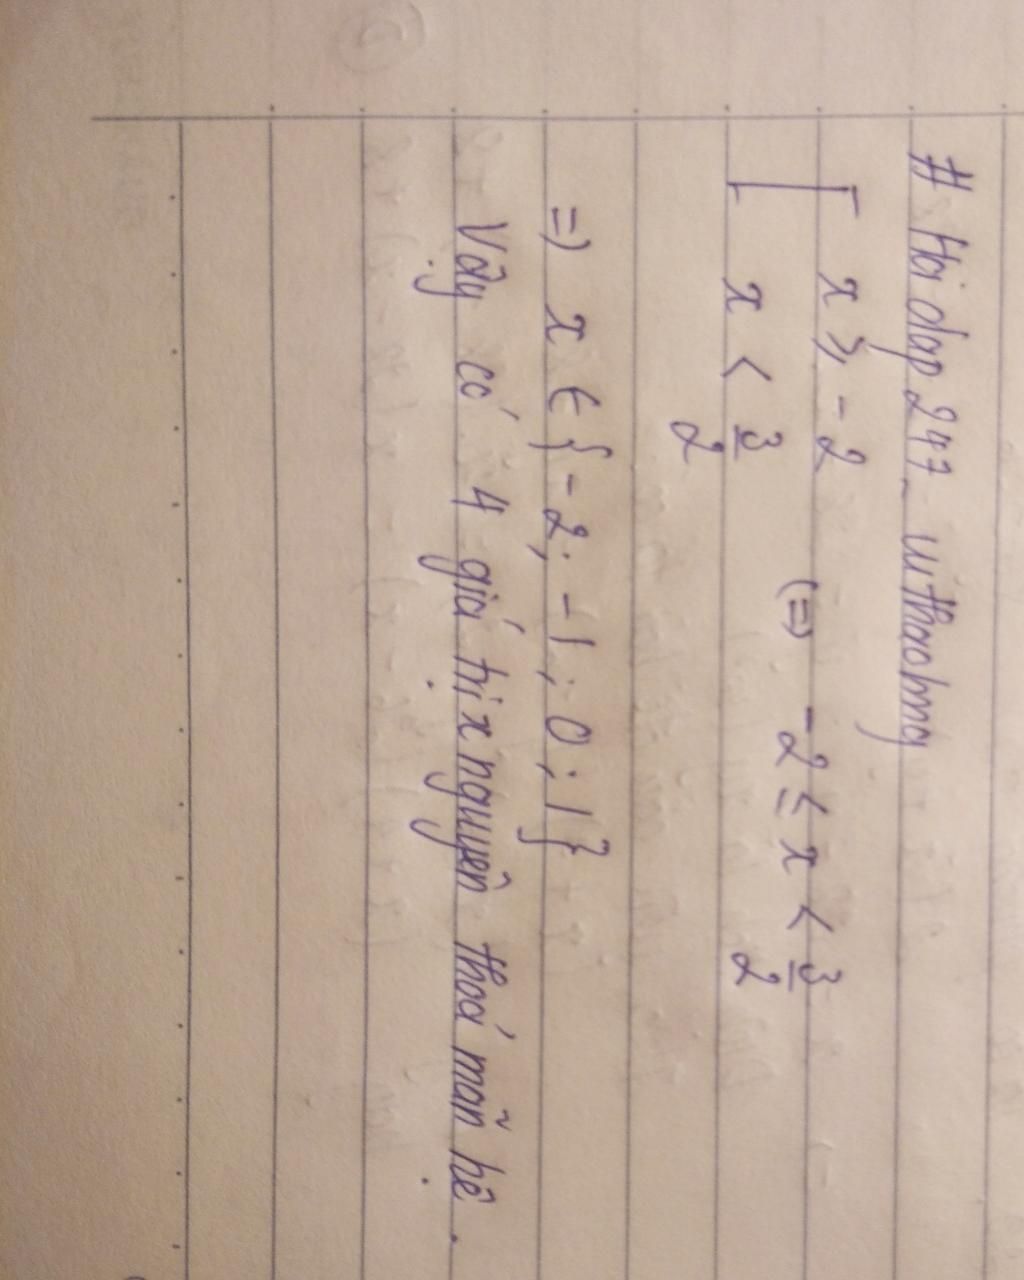 # Hoidap247_uithaobng
[ x ⩾ -2
x < 3/2 (=) -2 ≤ x < 3/2
=) x ∈ {-2; -1; 0; 1}
Vậy có 4 giá trị x nguyên thoả mãn hệ.